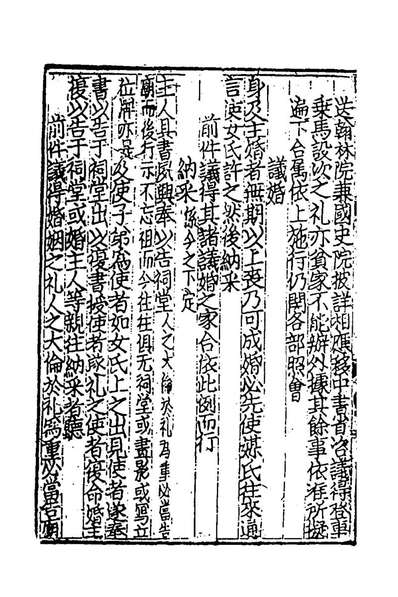 送翰林院兼國史院披詳相應移中書省咨議得登車
乗馬設次之礼亦貧家不能辦外據其餘事依在所擬
遍下合属依上施行仍関各部照會
議婚
身及主婚者無期以上喪乃可成婚必先使媒氏往來通
言俟女氏許之然後納采
前件議得其諸議婚之家合依此例而行
納采 係今之下定
主人具書夙興奉以告祠堂人之大倫於礼為重必當告
廟而後行示不忘祖而今往往俱无祠堂或畫影或寫立
位牌亦是及使子弟為使者如女氏上之出見使者遂奉
書以告于祠堂出以復書授使者遂礼之使者復命婚主
復以告于祠堂或婚主人等親往納采者聽
前件議得婚姻之礼人之大倫於礼為重必當告廟